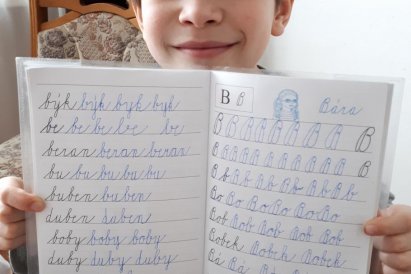 býk býk byk byk
be be be be be
beran beran beran
bu bu bu bu bu
buben buben
duben duben
boby boby boby
duby duby duby
B B Bára
B B B B B B B B
B B B B B B B B B
B b Bb Bb Bb Bb Bb
Bo Bo Bo Bo Bo
Bob Bob Bob Bob Bob
Bobek Bobek Bobek
Bá Bá Bá Bá Bá